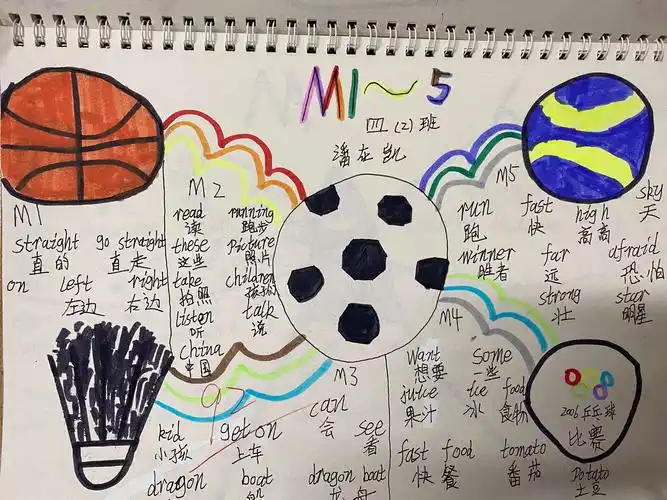 M1~5
四(2)班
潘在凯
M1
straight go straight
直的 直走
on left right
左边 右边
M2
read running
读 跑步
these picture
这些 照片
take children
拍照 孩孩
listen talk
听 说
China
中国
M3
can see
会 看
kid get on
小孩 上车
dragon boat dragon boat
龙舟
M4
want some
想要 一些
juice ice food
果汁 冰 食物
fast food tomato
快餐 番茄
potato
土豆
M5
run fast high sky
跑 快 高高 天
winner far afraid
胜者 远 恐怕
strong star
壮 明星
2006乒乓球
比赛